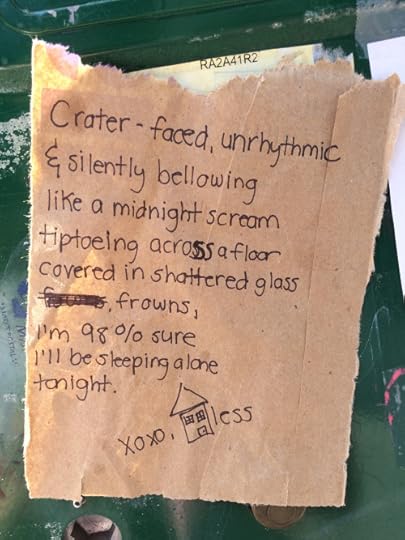 RA2A41R2
Crater-faced, unrhythmic
& silently bellowing
like a midnight scream
tiptoeing across a floor
covered in shattered glass
, frowns,
I'm 98% sure
I'll be sleeping alone
tonight.
xoxo, less